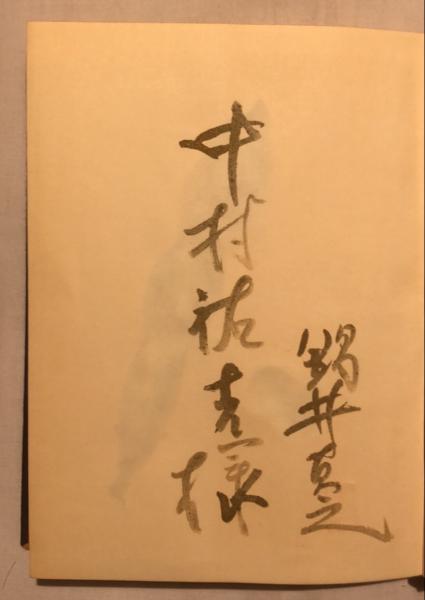 鍋井克之
中村祐吉様